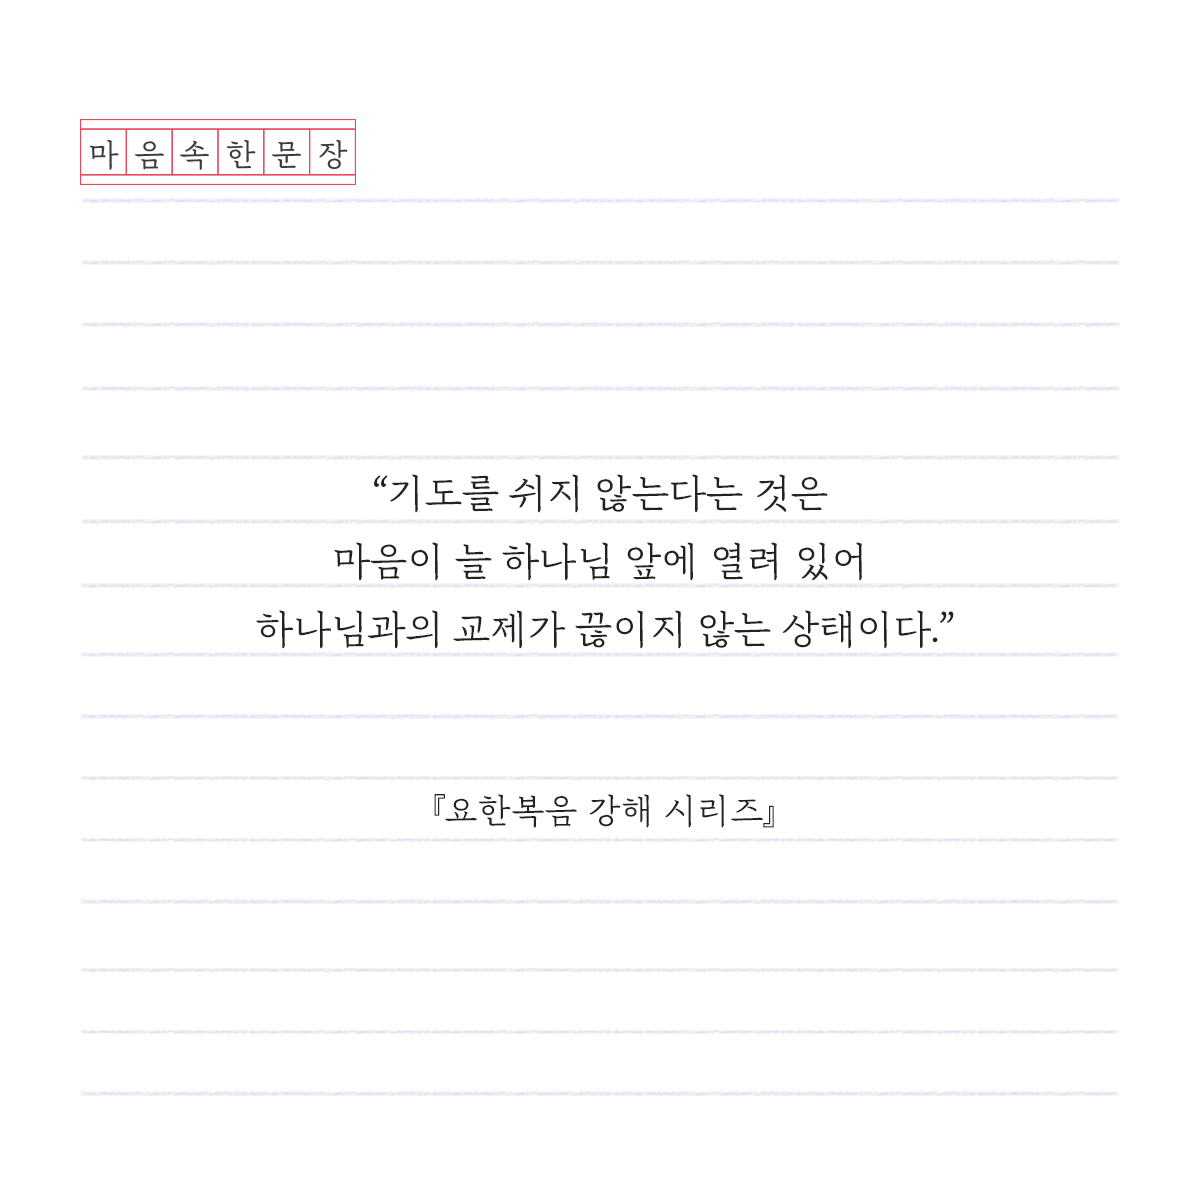 마음속한문장
“기도를 쉬지 않는다는 것은
마음이 늘 하나님 앞에 열려 있어
하나님과의 교제가 끊이지 않는 상태이다.”
『요한복음 강해 시리즈』